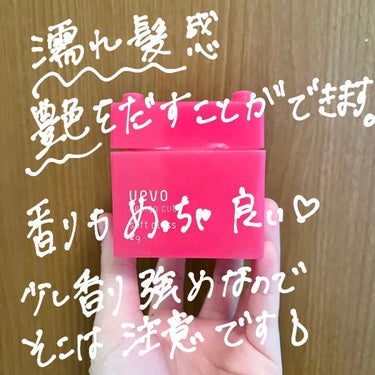 濡れ髪感
艶をだすことができます。
uevo
design cube
soft gloss
2g
香りもめっちゃ良い♡
少し香り強めなので
そこは注意です